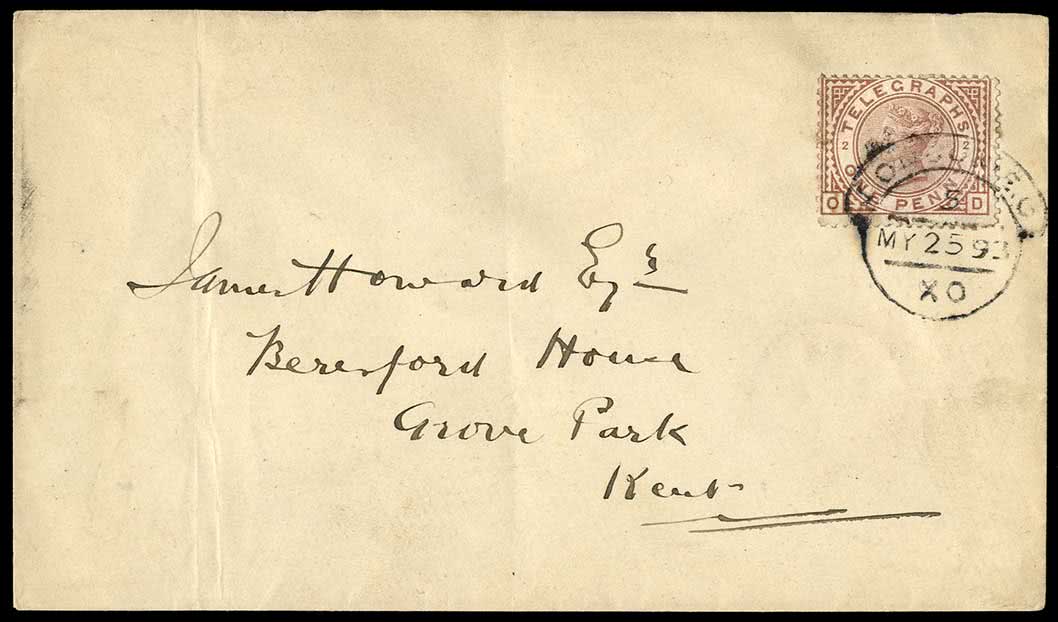 TELEGRAPHS
2 2
O PENN
O D
5
MY 25 93
XO
James Howard Esqr
Beresford House
Grove Park
Kent